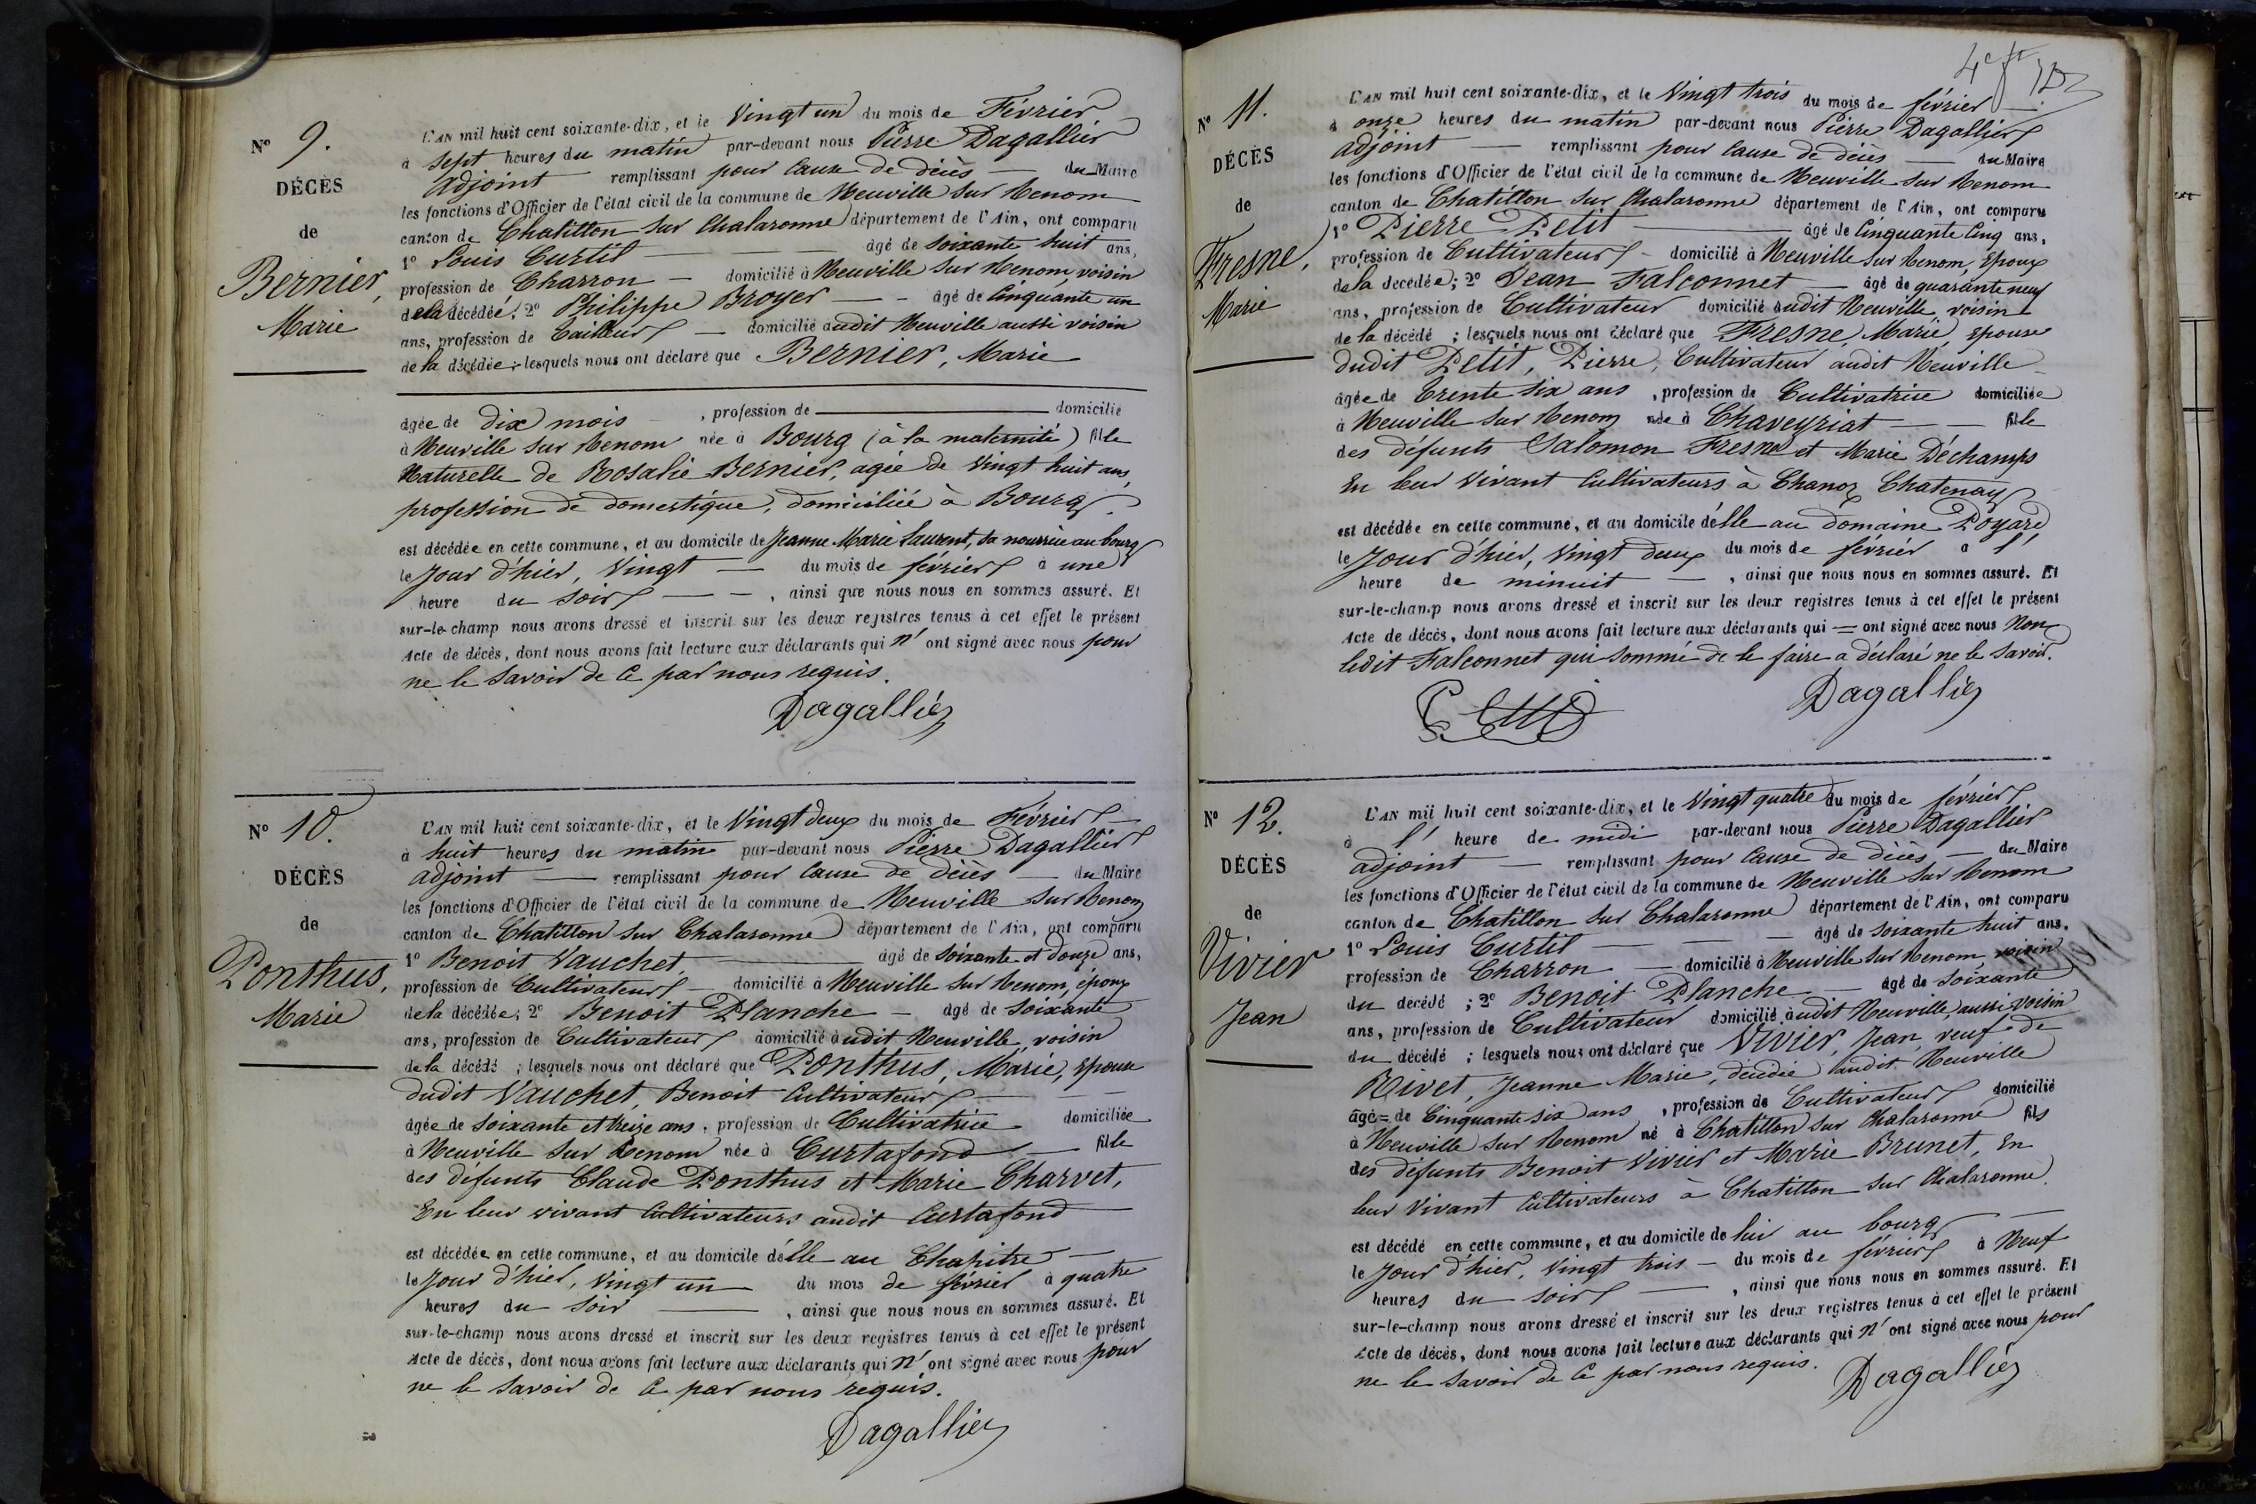 N° 9.
DÉCÈS
de
Bernier,
Marie
L'AN mil huit cent soixante-dix, et le Vingt un du mois de Février
à sept heures du matin par-devant nous Pierre Dagallier
adjoint — remplissant pour cause de décès — du Maire
les fonctions d'Officier de l'état civil de la commune de Neuville sur Renom
canton de Chatillon sur Chalaronne département de l'Ain, ont comparu
1° Louis Curtil — âgé de soixante huit ans,
profession de Charron — domicilié à Neuville sur Renom, voisin
de la décédée; 2° Philippe Broyer — âgé de Cinquante un
ans, profession de Tailleur — domicilié audit Neuville aussi voisin
de la décédée; lesquels nous ont déclaré que Bernier, Marie
âgée de dix mois , profession de — domicilié
à Neuville sur Renom née à Bourg (à la maternité) fille
Naturelle de Rosalie Bernier, agée de Vingt huit ans,
profession de domestique, domiciliée à Bourg.
est décédée en cette commune, et au domicile de Jeanne Marie Laurent, sa nourrice au bourg
le Jour d'hier, Vingt — du mois de février à une
heure du soir — , ainsi que nous nous en sommes assuré. Et
sur-le-champ nous avons dressé et inscrit sur les deux registres tenus à cet effet le présent
Acte de décès, dont nous avons fait lecture aux déclarants qui n' ont signé avec nous pour
ne le savoir de ce par nous requis.
Dagallier
N° 10.
DÉCÈS
de
Ponthus,
Marie
L'AN mil huit cent soixante-dix, et le Vingt deux du mois de Février
à huit heures du matin par-devant nous Pierre Dagallier
adjoint — remplissant pour cause de décès — du Maire
les fonctions d'Officier de l'état civil de la commune de Neuville sur Renom
canton de Chatillon sur Chalaronne département de l'Ain, ont comparu
1° Benoit Vauchet, — âgé de soixante et douze ans,
profession de Cultivateur — domicilié à Neuville sur Renom, époux
de la décédée; 2° Benoit Planche — âgé de soixante
ans, profession de Cultivateur domicilié audit Neuville, voisin
de la décédé ; lesquels nous ont déclaré que Ponthus, Marie, Epouse
dudit Vauchet, Benoit Cultivateur
âgée de soixante et treize ans, profession de Cultivatrice domiciliée
à Neuville sur Renom née à Curtafond — fille
des défunts Claude Ponthus et Marie Charvet,
En leur vivant Cultivateurs audit Curtafond
est décédée en cette commune, et au domicile d'elle au Chapitre —
le Jour d'hier, Vingt un du mois de février à quatre
heures du soir — , ainsi que nous nous en sommes assuré. Et
sur-le-champ nous avons dressé et inscrit sur les deux registres tenus à cet effet le présent
Acte de décès, dont nous avons fait lecture aux déclarants qui n' ont signé avec nous pour
ne le savoir de ce par nous requis.
Dagallier
N° 11.
DÉCÈS
de
Fresne,
Marie
L'AN mil huit cent soixante-dix, et le Vingt trois du mois de février
à onze heures du matin par-devant nous Pierre Dagallier
adjoint — remplissant pour cause de décès — du Maire
les fonctions d'Officier de l'état civil de la commune de Neuville sur Renom
canton de Chatillon sur Chalaronne département de l'Ain, ont comparu
1° Pierre Petit — âgé de Cinquante Cinq ans,
profession de Cultivateur — domicilié à Neuville sur Renom, Epoux
de la décédée; 2° Jean Falconnet — âgé de quarante neuf
ans, profession de Cultivateur domicilié audit Neuville, voisin
de la décédé ; lesquels nous ont déclaré que Fresne, Marie, Epouse
dudit Petit, Pierre, Cultivateur audit Neuville
âgée de Trente six ans , profession de Cultivatrice domiciliée
à Neuville sur Renom née à Chaveyriat — fille
des défunts Salomon Fresne et Marie Déchamps
En leur Vivant Cultivateurs à Chanoz Chatenay
est décédée en cette commune, et au domicile d'elle au domaine Poyard
le Jour d'hier, Vingt deux du mois de février à l'
heure de minuit — , ainsi que nous nous en sommes assuré. Et
sur-le-champ nous avons dressé et inscrit sur les deux registres tenus à cet effet le présent
Acte de décès, dont nous avons fait lecture aux déclarants qui = ont signé avec nous Non
ledit Falconnet qui sommé de le faire a déclaré ne le savoir.
Dagallier
N° 12.
DÉCÈS
de
Vivier
Jean
L'AN mil huit cent soixante-dix, et le Vingt quatre du mois de février
à l' heure de midi par-devant nous Pierre Dagallier
adjoint — remplissant pour cause de décès — du Maire
les fonctions d'Officier de l'état civil de la commune de Neuville sur Renom
canton de Chatillon sur Chalaronne département de l'Ain, ont comparu
1° Louis Curtil — âgé de soixante huit ans,
profession de Charron — domicilié à Neuville sur Renom, voisin
du décédé ; 2° Benoit Planche — âgé de soixante
ans, profession de Cultivateur domicilié audit Neuville, aussi voisin
du décédé ; lesquels nous ont déclaré que Vivier, Jean, veuf de
Rivet, Jeanne Marie, décédée audit Neuville
âgé = de Cinquante six ans , profession de Cultivateur domicilié
à Neuville sur Renom né à Chatillon sur Chalaronne fils
des défunts Benoit Vivier et Marie Brunet, En
leur Vivant Cultivateurs à Chatillon sur Chalaronne.
est décédé en cette commune, et au domicile de lui au bourg —
le Jour d'hier, Vingt trois — du mois de février à Neuf
heures du soir — , ainsi que nous nous en sommes assuré. Et
sur-le-champ nous avons dressé et inscrit sur les deux registres tenus à cet effet le présent
Acte de décès, dont nous avons fait lecture aux déclarants qui n' ont signé avec nous pour
ne le savoir de ce par nous requis.
Dagallier